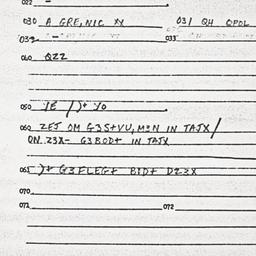 022
030 A GRE,NIC XX 031 QH OPOL
039 033
040 QZZ
050 YE /)+ YO
060 ZEJ OM G3S+VU,MON IN TAJX/
ON Z3X- G3BOD+ IN TAJX
061 )+ G3FLEG+ BID+ DZ3X
070
071 072